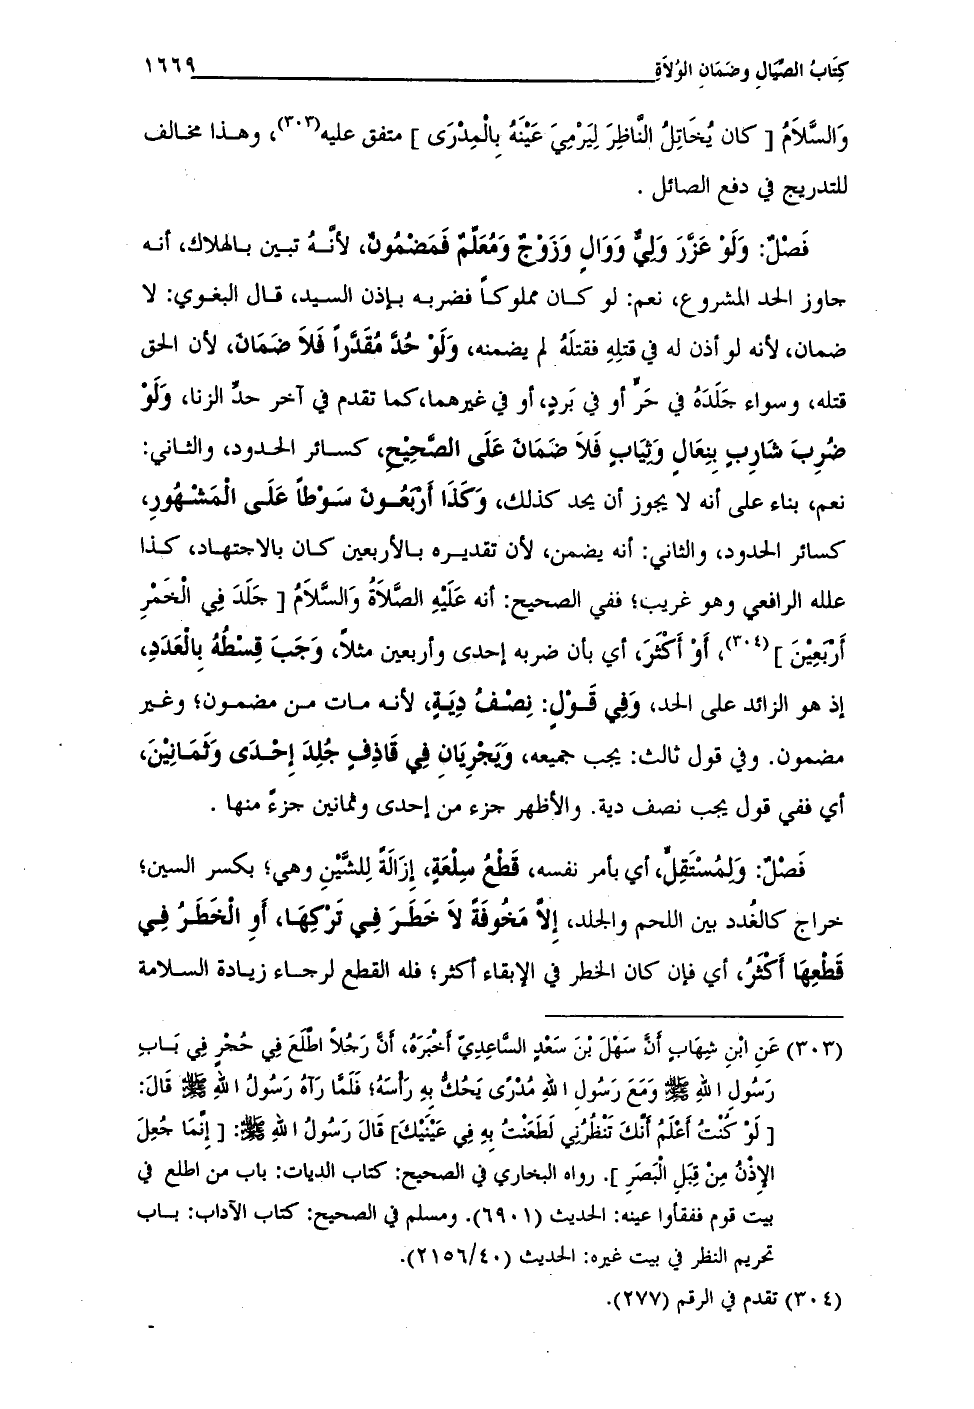 كِتَابُ الصِّيَالِ وضَمَانِ الوُلاَةِ ١٦٦٩
وَالسَّلاَمُ [ كان يُخَاتِلُ النَّاظِرَ لِيَرْمِيَ عَيْنَهُ بِالْمِدْرَى ] متفق عليه(٣٠٣)، وهـذا مخالف
للتدريج في دفع الصائل .
فَصْلٌ: وَلَوْ عَزَّرَ وَلِيٌّ وَوَالٍ وَزَوْجٌ وَمُعَلِّمٌ فَمَضْمُونٌ، لأَنَّهُ تبين بـالهلاك، أنـه
جاوز الحد المشروع، نعم: لو كـان مملوكـاً فضربـه بـإذن السيد، قـال البغوي: لا
ضمان، لأنه لو أذن له في قتلِهِ فقتلَهُ لم يضمنه، وَلَوْ حُدَّ مُقَدَّراً فَلاَ ضَمَانَ، لأن الحق
قتله، وسواء جَلَدَهُ في حَرٍّ أو في بَردٍ، أو في غيرهما،كما تقدم في آخر حدِّ الزنا، وَلَوْ
ضُرِبَ شَارِبٍ بِنِعَالٍ وَثِيَابٍ فَلاَ ضَمَانَ عَلَى الصَّحِيْحِ، كسـائر الحـدود، والثـاني:
نعم، بناء على أنه لا يجوز أن يحد كذلك، وَكَذَا أَرْبَعُـونَ سَـوْطاً عَلَـى الْمَشْـهُورِ،
كسائر الحدود، والثاني: أنه يضمن، لأن تقديـره بـالأربعين كـان بالاجتهـاد، كـذا
علله الرافعي وهو غريب؛ ففي الصحيح: أنه عَلَيْهِ الصَّلاَةُ وَالسَّلاَمُ [ جَلَدَ فِي الْخَمْرِ
أَرْبَعِيْنَ ](٣٠٤)، أَوْ أَكْثَرَ، أي بأن ضربه إحدى وأربعين مثلاً، وَجَبَ قِسْطُهُ بِالْعَدَدِ،
إذ هو الزائد على الحد، وَفِي قَـوْلٍ: نِصْـفُ دِيَـةٍ، لأنـه مـات مـن مضمـون؛ وغـير
مضمون. وفي قول ثالث: يجب جميعه، وَيَجْرِيَانِ فِي قَاذِفٍ جُلِدَ إِحْـدَى وَثَمَـانِيْنَ،
أي ففي قول يجب نصف دية. والأظهر جزء من إحدى وثمانين جزءً منها .
فَصْلٌ: وَلِمُسْتَقِلٍّ، أي بأمر نفسه، قَطْعُ سِلْعَةٍ، إِزَالَةً لِلشَّيْنِ وهي؛ بكسر السين؛
خراج كالغُدد بين اللحم والجلد، إِلاَّ مَخُوفَةً لاَ خَطَرَ فِـي تَرْكِهَـا، أَوِ الْخَطَـرُ فِـي
قَطْعِهَا أَكْثَرُ، أي فإن كان الخطر في الإبقاء أكثر؛ فله القطع لرجـاء زيـادة السـلامة
(٣٠٣) عَنِ ابْنِ شِهَابٍ أَنَّ سَهْلَ بْنَ سَعْدٍ السَّاعِدِيّ أَخْبَرَهُ، أَنَّ رَجُلاً اطَّلَعَ فِي حُجْرٍ فِي بَـابِ
رَسُولِ اللهِ ﷺ وَمَعَ رَسُولِ اللهِ مُدْرًى يَحُكُّ بِهِ رَأْسَهُ؛ فَلَمَّا رَآهُ رَسُولُ اللهِ ﷺ قَالَ:
[ لَوْ كُنْتُ أَعْلَمُ أَنَّكَ تَنْظُرُنِي لَطَعَنْتُ بِهِ فِي عَيْنَيْكَ] قَالَ رَسُولُ اللهِ ﷺ: [ إِنَّمَا جُعِلَ
الإِذْنُ مِنْ قِبَلِ الْبَصَرِ ]. رواه البخاري في الصحيح: كتاب الديات: باب من اطلع في
بيت قوم ففقأوا عينه: الحديث (٦٩٠١). ومسلم في الصحيح: كتاب الآداب: بـاب
تحريم النظر في بيت غيره: الحديث (٢١٥٦/٤٠).
(٣٠٤) تقدم في الرقم (٢٧٧).